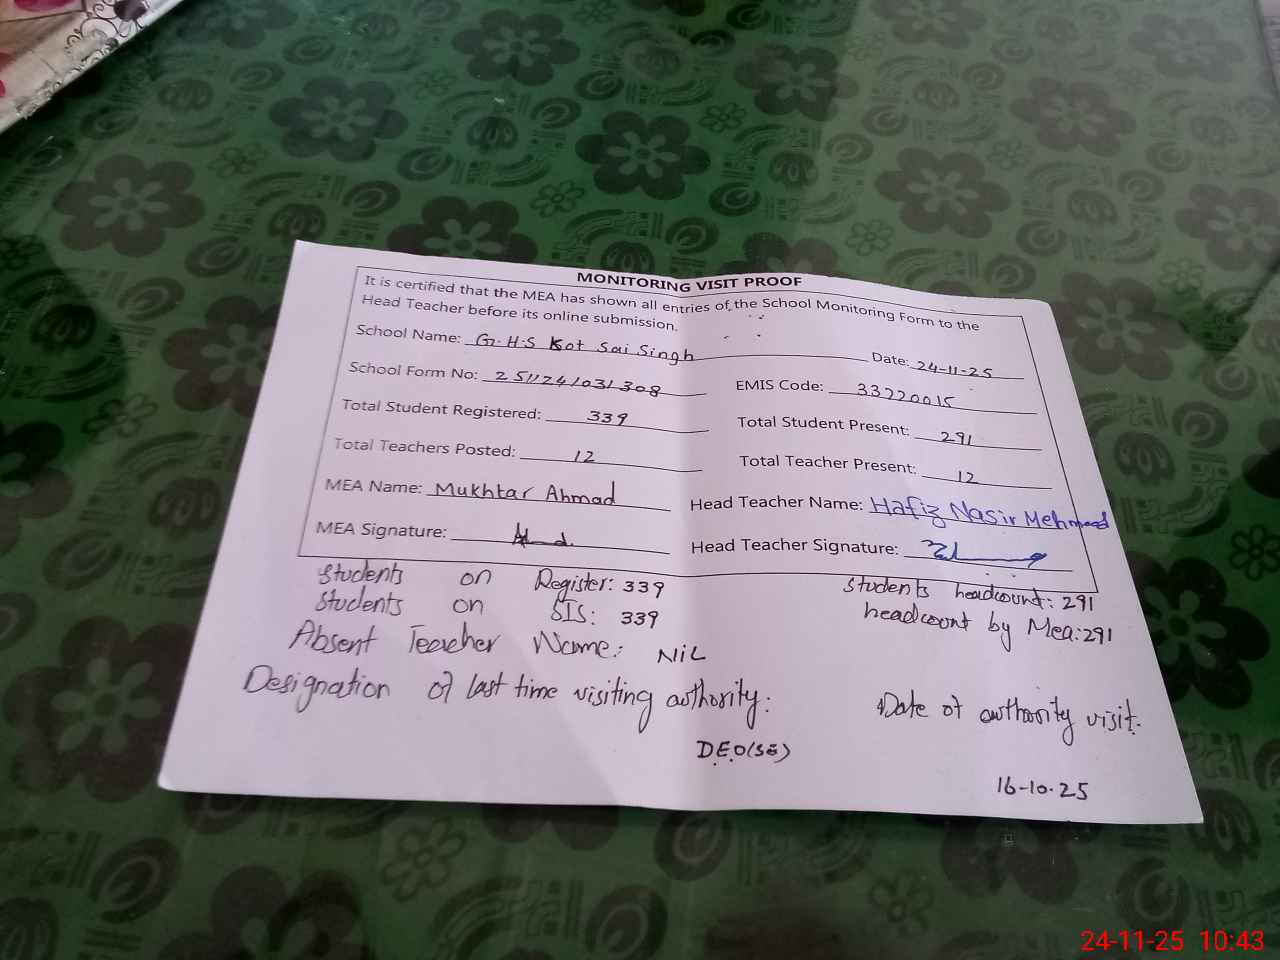 MONITORING VISIT PROOF
It is certified that the MEA has shown all entries of the School Monitoring Form to the
Head Teacher before its online submission.
School Name: G.H.S Kot Sai Singh Date: 24-11-25
School Form No: 2511241031308 EMIS Code: 33220015
Total Student Registered: 339 Total Student Present: 291
Total Teachers Posted: 12 Total Teacher Present: 12
MEA Name: Mukhtar Ahmad Head Teacher Name: Hafiz Nasir Mehmood
MEA Signature: Head Teacher Signature:
Students on Register: 339 Students headcount: 291
Students on SIS: 339 headcount by Mea: 291
Absent Teacher Name: NiL
Designation of last time visiting authority: Date of authority visit.
D.E.O(SE) 16-10-25
24-11-25 10:43